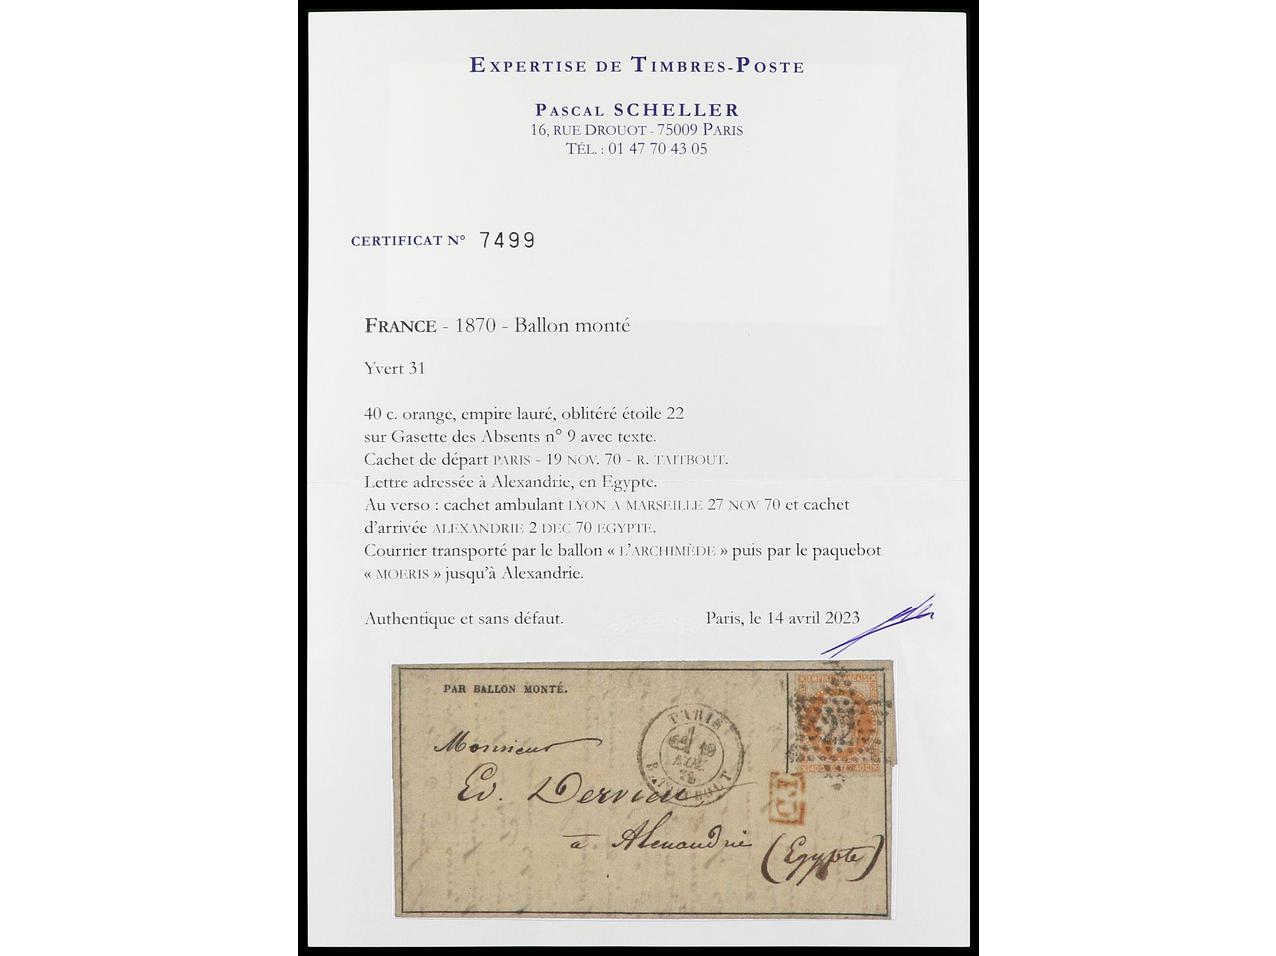 EXPERTISE DE TIMBRES-POSTE
PASCAL SCHELLER
16, RUE DROUOT - 75009 PARIS
TÉL. : 01 47 70 43 05
CERTIFICAT N° 7499
FRANCE - 1870 - Ballon monté
Yvert 31
40 c. orange, empire lauré, oblitéré étoile 22
sur Gasette des Absents n° 9 avec texte.
Cachet de départ PARIS - 19 NOV. 70 - R. TAITBOUT.
Lettre adressée à Alexandrie, en Egypte.
Au verso : cachet ambulant LYON A MARSEILLE 27 NOV 70 et cachet
d'arrivée ALEXANDRIE 2 DEC 70 EGYPTE.
Courrier transporté par le ballon « L'ARCHIMÈDE » puis par le paquebot
« MOERIS » jusqu'à Alexandrie.
Authentique et sans défaut. Paris, le 14 avril 2023
PAR BALLON MONTÉ.
PARIS
19
22
Monsieur
Ed. Dervieu
à Alexandrie
(Egypte)